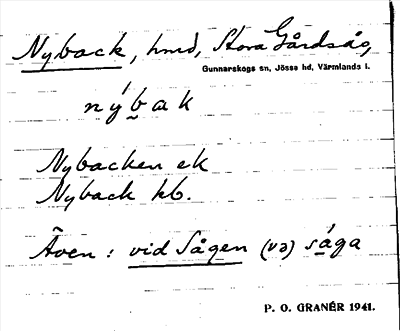 Nyback, hmd, Stora Gårdsås,
Gunnarskogs sn, Jösse hd, Värmlands l.
nýbak
Nybacken ek
Nyback kb.
Även : vid Sågen (və) sága
P. O. GRANÉR 1941.